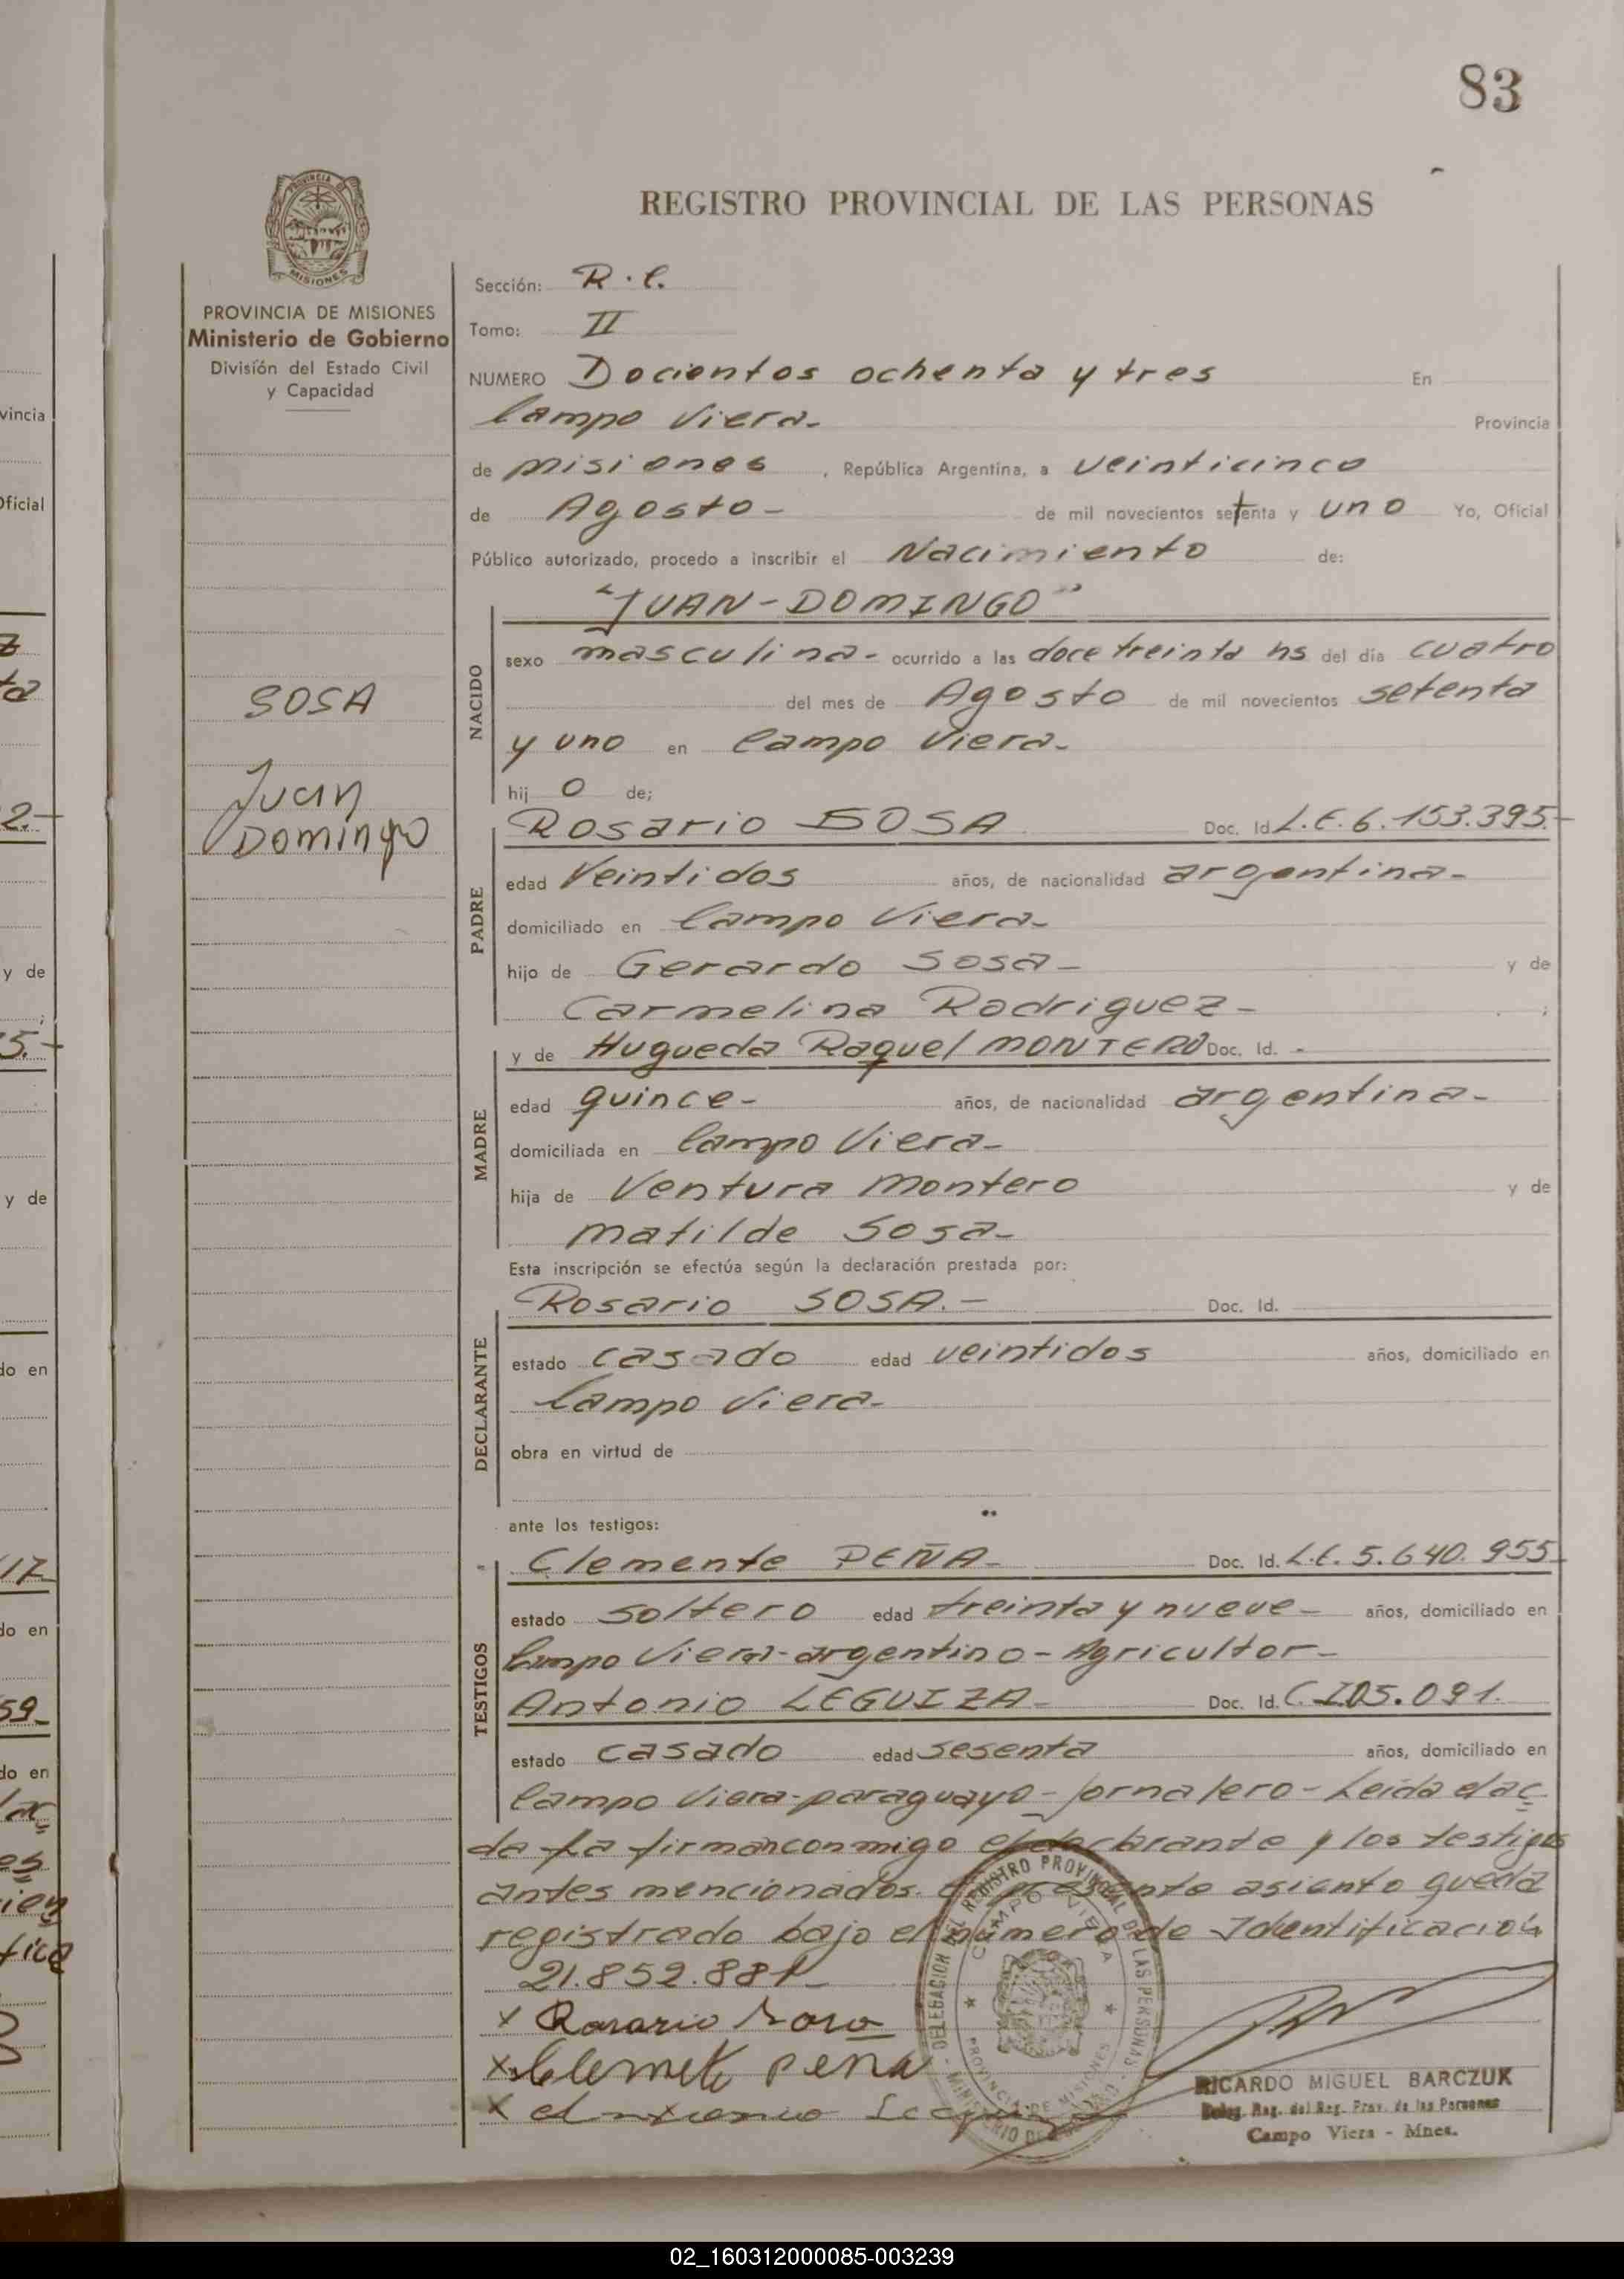 83
REGISTRO PROVINCIAL DE LAS PERSONAS
PROVINCIA DE
MISIONES
PROVINCIA DE MISIONES
Ministerio de Gobierno
División del Estado Civil
y Capacidad
SOSA
Juan
Domingo
Sección: R.C.
Tomo: II
NUMERO Docientos ochenta y tres En
Campo Viera- Provincia
de misiones, República Argentina, a veinticinco
de Agosto- de mil novecientos setenta y uno Yo, Oficial
Público autorizado, procedo a inscribir el Nacimiento de:
NACIDO
"JUAN-DOMINGO"
sexo masculina- ocurrido a las doce treinta hs del día cuatro
del mes de Agosto de mil novecientos setenta
y uno en Campo Viera-
hij o de;
PADRE
Rosario SOSA Doc. Id. L.E. 6.153.395.-
edad Veintidos años, de nacionalidad argentina-
domiciliado en Campo Viera-
hijo de Gerardo Sosa- y de
Carmelina Rodriguez- ;
MADRE
y de Hugueda Raquel MONTERO Doc. Id. -
edad quince- años, de nacionalidad argentina-
domiciliada en Campo Viera-
hija de Ventura Montero y de
Matilde Sosa-
Esta inscripción se efectúa según la declaración prestada por:
DECLARANTE
Rosario SOSA.- Doc. Id.
estado casado edad veintidos años, domiciliado en
Campo Viera-
obra en virtud de
ante los testigos:
TESTIGOS
Clemente PEÑA- Doc. Id. L.E. 5.640.955
estado soltero edad treinta y nueve- años, domiciliado en
Campo Viera-argentino-Agricultor-
Antonio LEGUIZA- Doc. Id. C.I. 05.091.
estado casado edad sesenta años, domiciliado en
Campo Viera-paraguayo-jornalero-Leida el ac
da La firman conmigo el declarante y los testigos
antes mencionados. El presente asiento queda
registrado bajo el número de Identificación
21.852.881-
x Rosario Sosa
x Clemete peña
x
DELEGACION DEL REGISTRO PROVINCIAL DE LAS PERSONAS
CAMPO VIERA
PROVINCIA DE MISIONES
RICARDO MIGUEL BARCZUK
Deleg. Reg. del Reg. Prov. de las Personas
Campo Viera - Mnes.
02_160312000085-003239